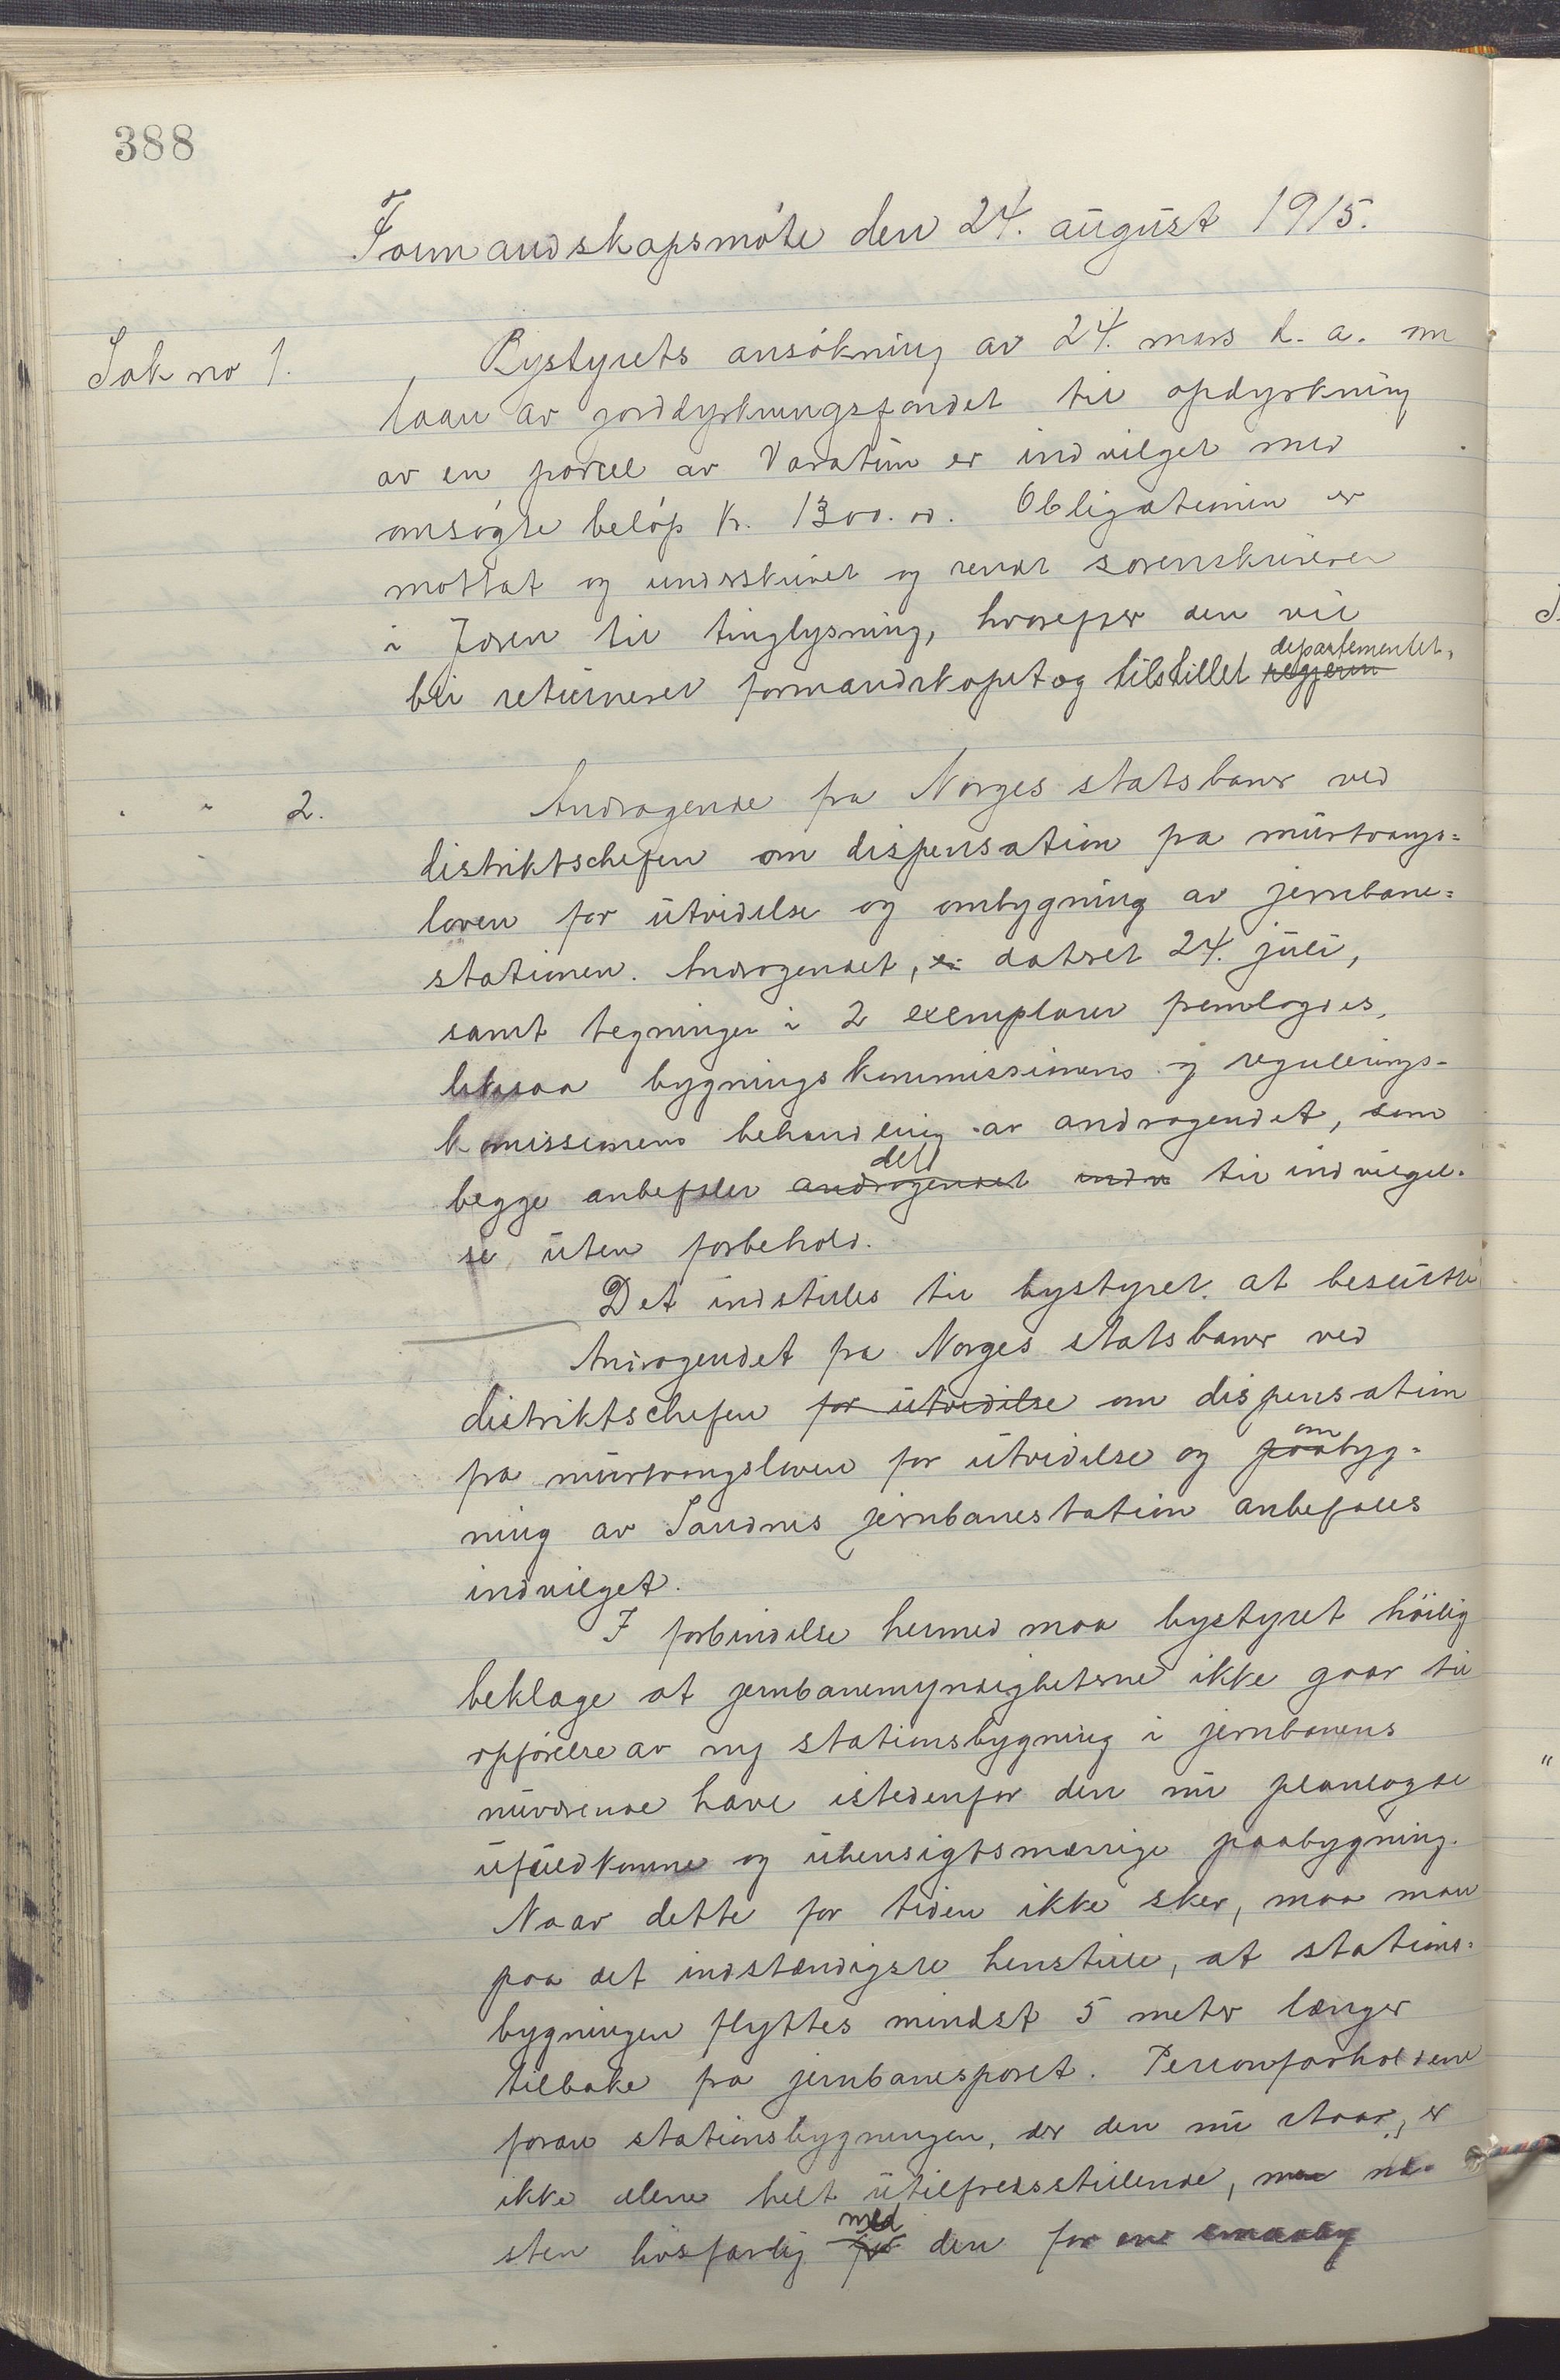 388
Formandskapsmöte den 24. august 1915.
Sak no 1.
Bystyrets ansökning av 24. mars d. a. om
laan av jorddyrkningsfondet til opdyrkning
av en parcel av Varatun er indvilget med
ansögte belöp kr. 1300.00. Obligationen er
mottat og underskrevet og sendt sorenskriveren
i Jæren til tinglysning, hvorefter den vil
bli returneret formandskapet og tilstillet regjerin departementet.
" " 2.
Andragende fra Norges statsbaner ved
distriktschefen om dispensation fra murtvangs=
loven for utvidelse og ombygning av jernbane=
stationen. Andragendet, er datert 24. juli,
samt tegninger i 2 exemplarer fremlagdes,
likesaa bygningskommissionens og regulerings-
komissionens behandling av andragendet, som
begge anbefaler andragendet det indv til indvilgel-
se uten forbehold.
Det indstilles til bystyret at beslutte
Andragendet fra Norges statsbaner ved
distriktschefen for utvidelse om dispensation
fra murtvangsloven for utvidelse og paa om byg=
ning av Sandnes jernbanestation anbefales
indvilget.
I forbindelse hermed maa bystyret höilig
beklage at jernbanemyndigheterne ikke gaar til
opförelse av ny stationsbygning i jernbanens
nuværende have istedenfor den nu planlagde
ufuldkomne og uhensigtsmæssige paabygning.
Naar dette for tiden ikke sker, maa man
paa det indstændigste henstille, at stations=
bygningen flyttes mindst 5 meter længer
tilbake fra jernbanesporet. Perronforholdene
foran stationsbygningen, der den nu staar, er
ikke alene helt utilfredsstillende, men næ-
sten livsfarlig for med den for en smaaby